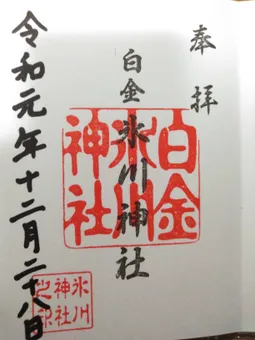 奉拝
白金氷川神社
白金氷川神社
令和元年十二月二十八日
氷川神社之印